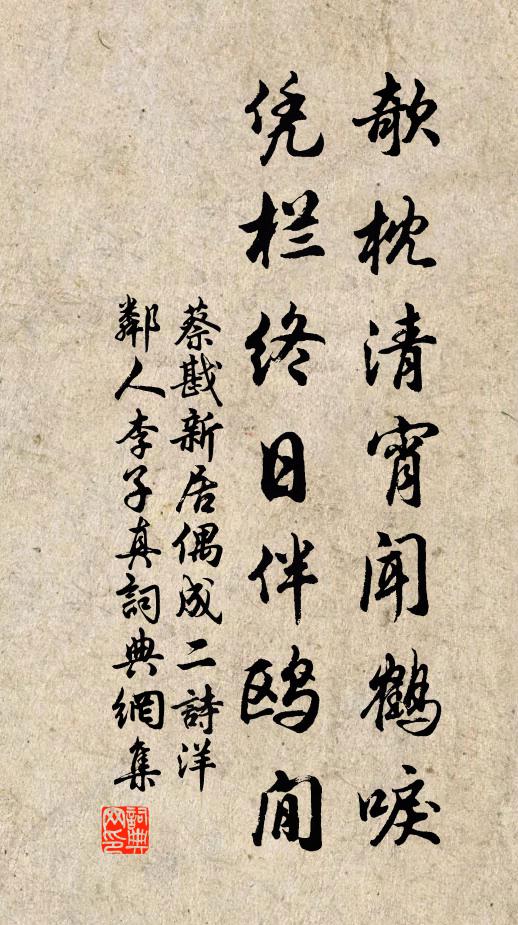 欹枕清宵闻鹤唳
凭栏终日伴鸥闲
蔡戡新居偶成二詩洋
鄰人李子真詞典網集
詞典
网印